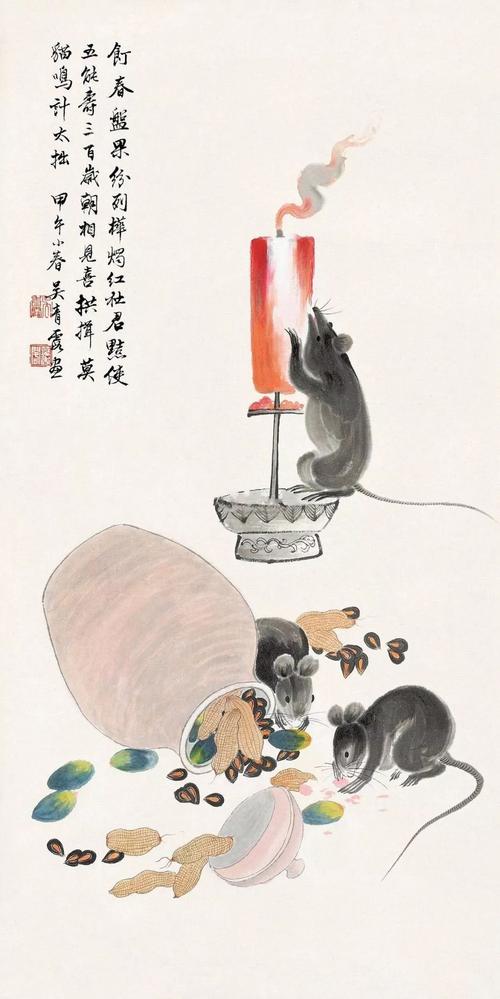 飣春盤果紛列樺燭紅社君黠使
五能壽三百歲朝相見喜拱揖莫
貓鳴計太拙 甲午小春吴青霞画